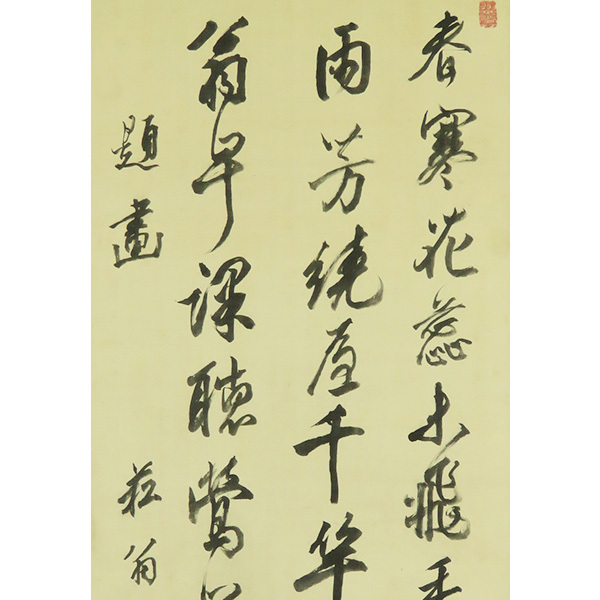 春寒花蕊未飛
雨芳繞屋千
翁早課聽鶯
題畫
菘翁